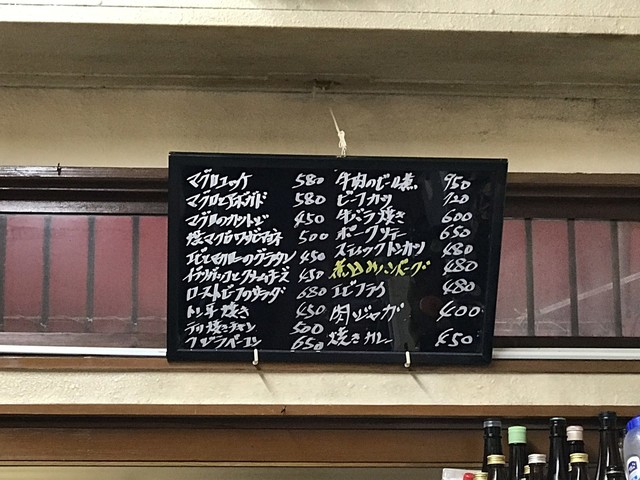 マグロユッケ 580
マグロとアボガド 580
マグロのカツレツ 450
焼マグロワサビマヨネ 500
エビとカレーのグラタン 450
クリームチーズ 450
ローストビーフのサラダ 680
トン平焼き 450
テリ焼きチキン 500
650
牛肉のビール煮 950
ビーフカツ 720
牛バラ焼き 600
ポークソテー 650
スティックトンカツ 480
煮込みハンバーグ 480
エビフライ 480
肉ジャガ 400
焼きカレー 650